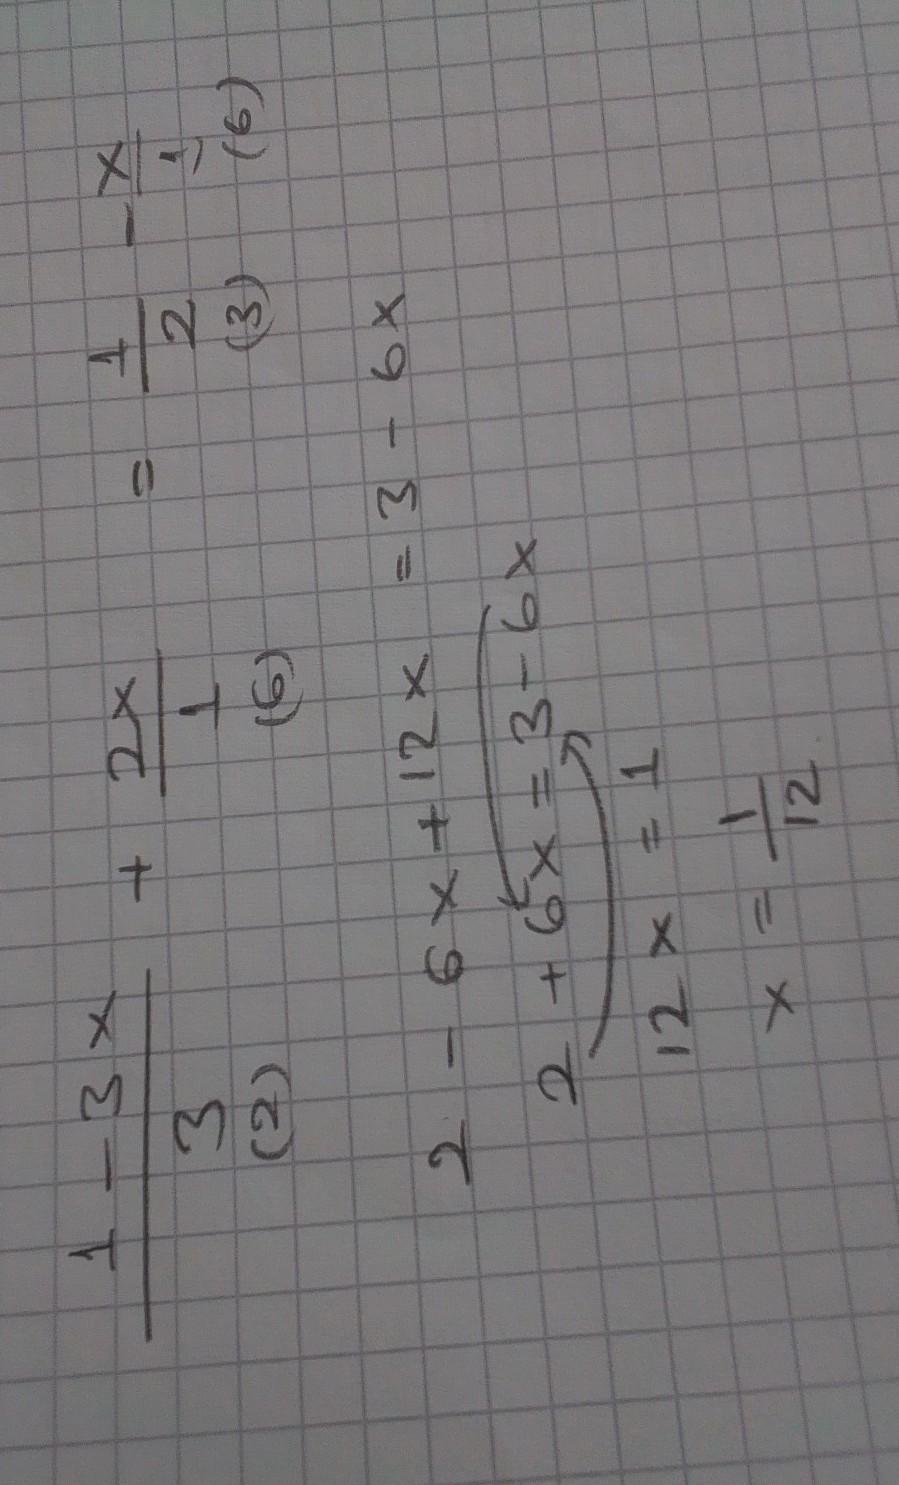 1 - 3x / 3 + 2x / 1 = 1 / 2 - x / 1
(2) (6) (3) (6)
2 - 6x + 12x = 3 - 6x
2 + 6x = 3 - 6x
12x = 1
x = 1 / 12